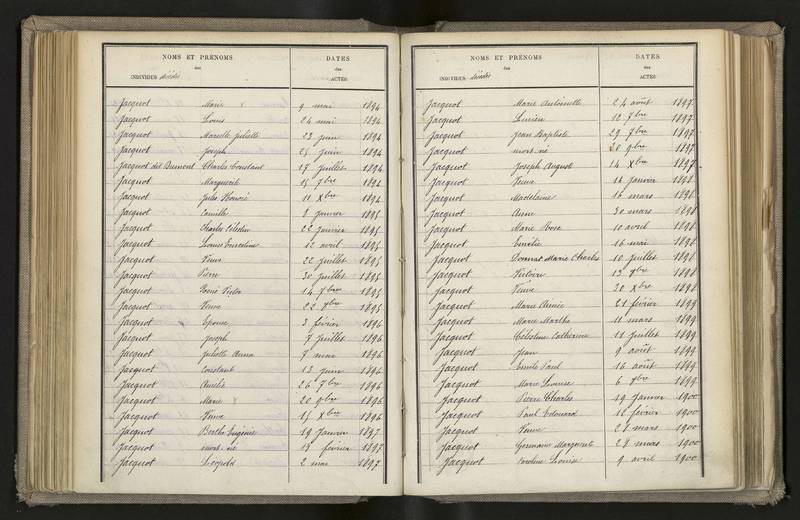 NOMS ET PRÉNOMS
des
INDIVIDUS décédés
DATES
des
ACTES
Jacquot Marie x 9 mai 1894
Jacquot Louis 24 mai 1894
Jacquot Marcelle Juliette 23 juin 1894
Jacquot Joseph 25 juin 1894
Jacquot dit Dumont Charles Constant 17 juillet 1894
Jacquot Marguerite 15 7bre 1894
Jacquot Jules Honoré 11 Xbre 1894
Jacquot Camille 8 janvier 1895
Jacquot Charles Célestin 22 janvier 1895
Jacquot Louise Ernestine 12 avril 1895
Jacquot Veuve 22 juillet 1895
Jacquot Pierre 30 juillet 1895
Jacquot René Victor 14 7bre 1895
Jacquot Veuve 22 7bre 1895
Jacquot Epouse 3 février 1896
Jacquot Joseph 7 juillet 1896
Jacquot Juliette Anna 7 mai 1896
Jacquot Constant 13 juin 1896
Jacquot Amélie 26 7bre 1896
Jacquot Marie x 20 9bre 1896
Jacquot Veuve 15 Xbre 1896
Jacquot Berthe Eugénie 19 janvier 1897
Jacquot mort-né 19 février 1897
Jacquot Léopold 2 mai 1897
NOMS ET PRÉNOMS
des
INDIVIDUS décédés
DATES
des
ACTES
Jacquot Marie Antoinette 24 août 1897
Jacquot Lucien 12 7bre 1897
Jacquot Jean Baptiste 29 7bre 1897
Jacquot mort-né 20 9bre 1897
Jacquot Joseph August 14 Xbre 1897
Jacquot Veuve 14 janvier 1898
Jacquot Madelaine 16 mars 1898
Jacquot Anne 30 mars 1898
Jacquot Marie Rose 10 avril 1898
Jacquot Emélie 16 mai 1898
Jacquot Marie Charles 10 juillet 1898
Jacquot Victoire 13 7bre 1898
Jacquot Veuve 30 Xbre 1898
Jacquot Marie Aimée 21 février 1899
Jacquot Marie Martha 11 mars 1899
Jacquot Célestine Catherine 11 juillet 1899
Jacquot Jean 9 août 1899
Jacquot Emile Paul 16 août 1899
Jacquot Marie Louise 6 7bre 1899
Jacquot Pierre Charles 19 janvier 1900
Jacquot Paul Edouard 12 février 1900
Jacquot Veuve 21 mars 1900
Jacquot Germaine Marguerite 29 mars 1900
Jacquot Caroline Louise 9 avril 1900